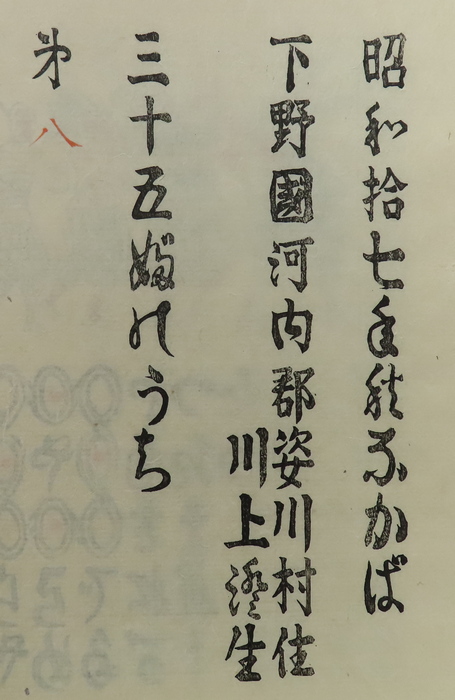 昭和拾七年秋なかば
下野國河内郡姿川村住
川上澄生
三十五ぶのうち
第八